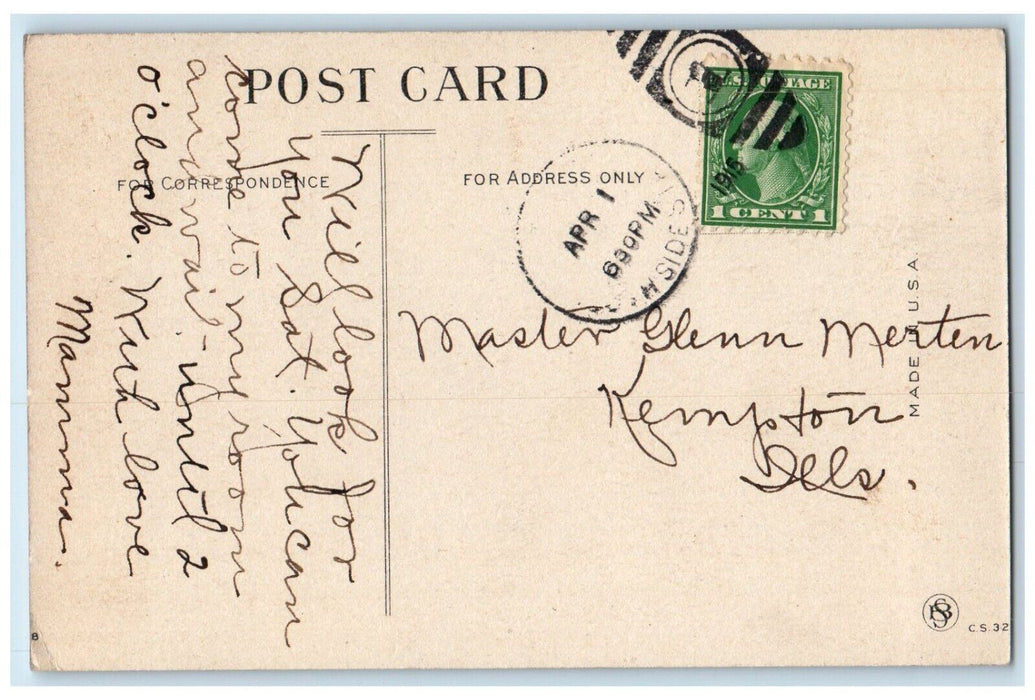 POST CARD
FOR CORRESPONDENCE
FOR ADDRESS ONLY
U.S. POSTAGE
1 CENT 1
APR 1
630 PM
1916
HSIDE STA
MADE IN U.S.A.
Master Glenn Merten
Kempton
Ills.
Will look for
you Sat. You can
come to my room
and wait until 2
o'clock. With love
Mamma.
C.S. 32
8